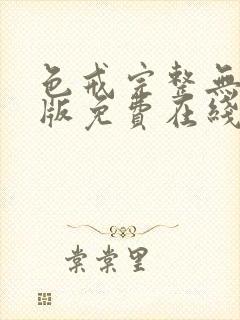 色戒完整無
版免費在綫
棠棠里